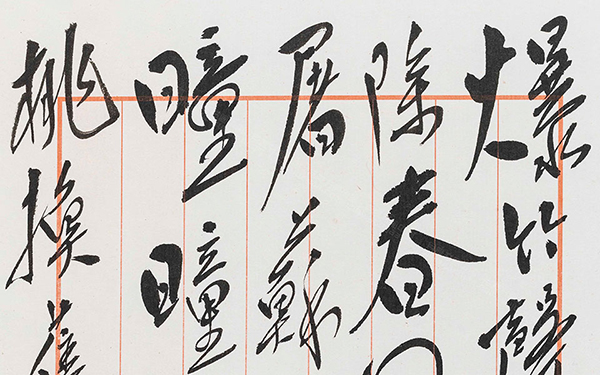 爆竹聲
除春
屠蘇
曈曈
桃換舊